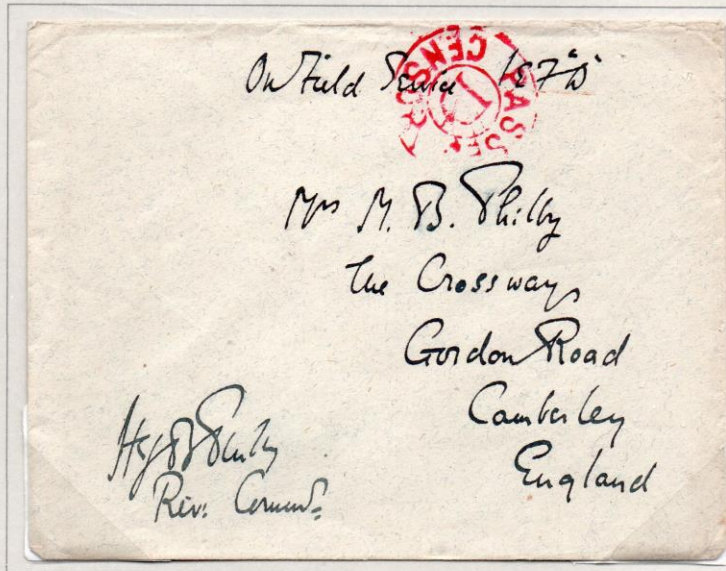 On Field Service IEF "D"
PASSED CENSOR
Mrs M. B. Philby
The Crossways
Gordon Road
Camberley
England
HStJBPhilby
Rev: Commr.